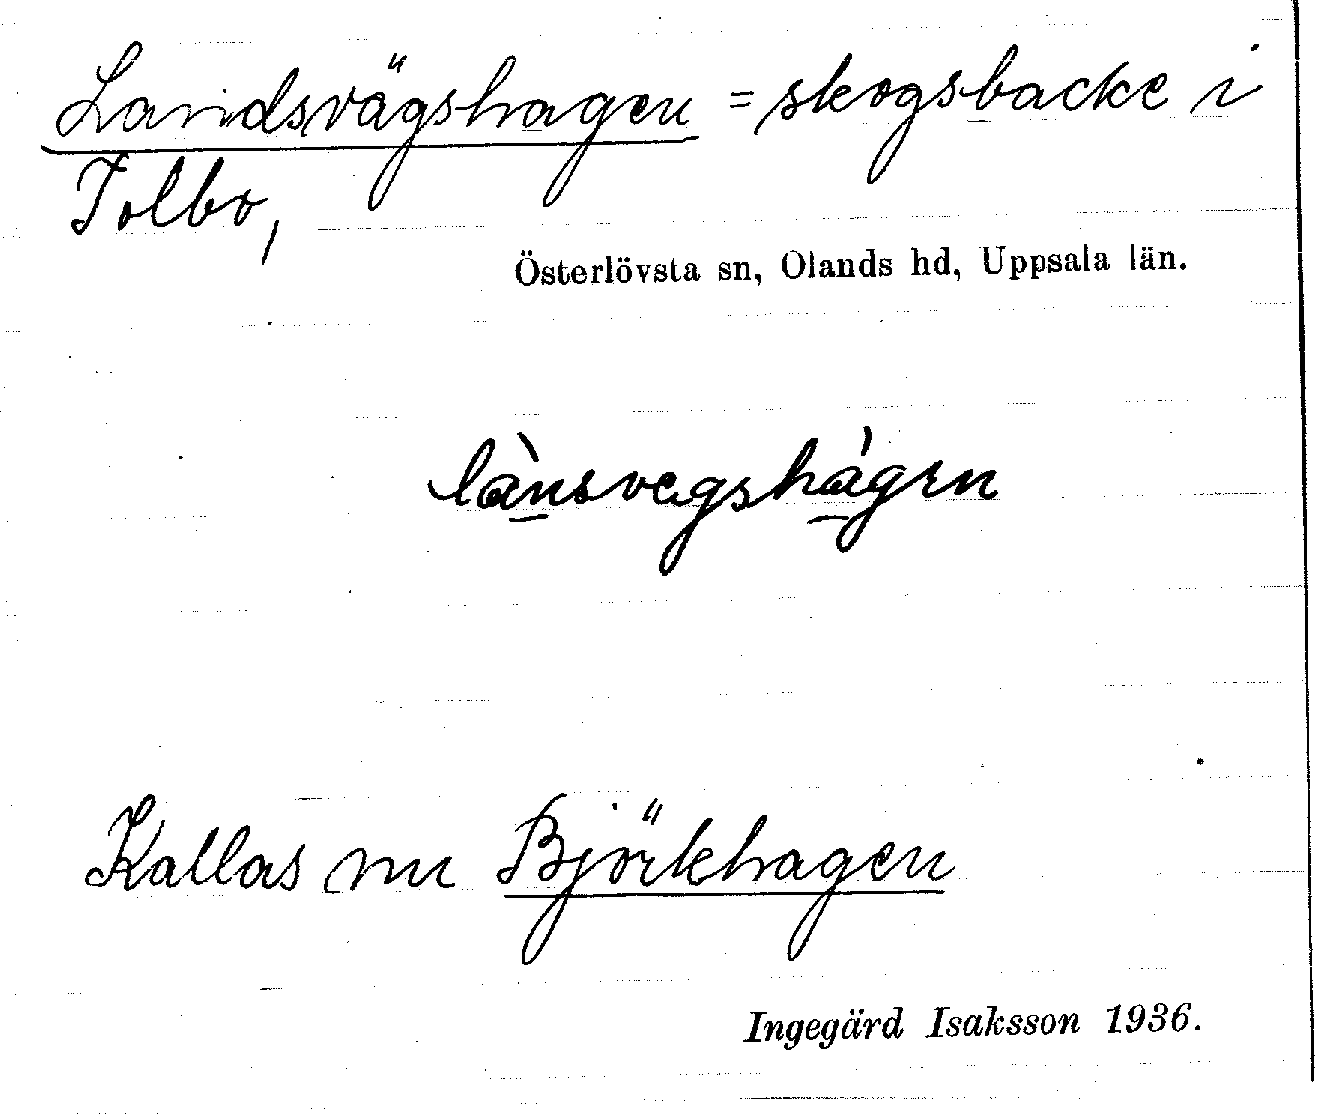 Landsvägshagen = skogsbacke i
Tolbo,
Österlövsta sn, Olands hd, Uppsala län.
lànsvegshágen
Kallas nu Björkhagen
Ingegärd Isaksson 1936.